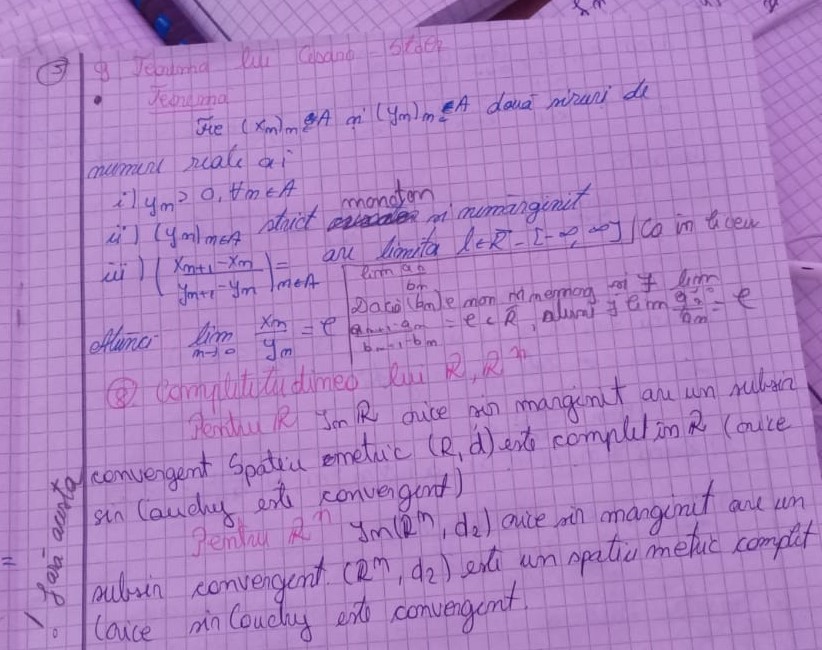 5) 8 Teorema lui Cesaro - Stolz
• Teorema
Fie (xn)n∈A și (yn)n∈A două șiruri de
numere reale aî
i) yn > 0, ∀n∈A
ii) (yn)n∈A strict monoton și nemărginit
iii) (xn+1 - xn / yn+1 - yn)n∈A = are limita l∈R̄ = [-∞, ∞] | Ca în liceu
lim an / bn
Dacă (bn) e mon și nemarg și ∃ lim
an+1 - an / bn+1 - bn = l ∈ R̄, atunci ∃ lim an / bn = l
Atunci lim n→∞ xn / yn = l
⑧ Completitudinea lui R, Rⁿ
Pentru R În R orice șir mărginit are un subșir
convergent Spațiu metric (R, d) este complet în R (orice
șir Cauchy este convergent)
Pentru Rⁿ În (Rⁿ, d₂) orice șir mărginit are un
subșir convergent. (Rⁿ, d₂) este un spațiu metric complet
(orice șir Cauchy este convergent.
! fără acesta
=